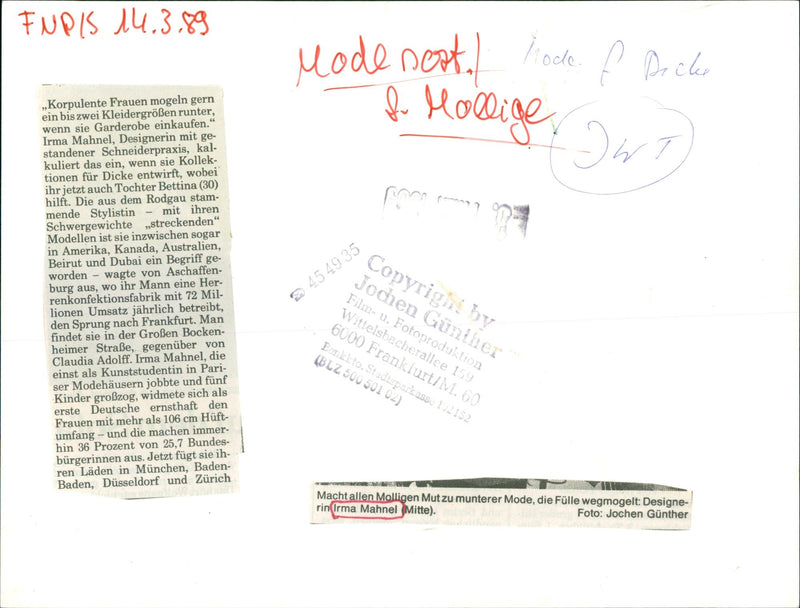 FNP/S 14.3.89
Mode
f. Mollige
Mode f Dicke
„Korpulente Frauen mogeln gern
ein bis zwei Kleidergrößen runter,
wenn sie Garderobe einkaufen.“
Irma Mahnel, Designerin mit ge-
standener Schneiderpraxis, kal-
kuliert das ein, wenn sie Kollek-
tionen für Dicke entwirft, wobei
ihr jetzt auch Tochter Bettina (30)
hilft. Die aus dem Rodgau stam-
mende Stylistin – mit ihren
Schwergewichte „streckenden“
Modellen ist sie inzwischen sogar
in Amerika, Kanada, Australien,
Beirut und Dubai ein Begriff ge-
worden – wagte von Aschaffen-
burg aus, wo ihr Mann eine Her-
renkonfektionsfabrik mit 72 Mil-
lionen Umsatz jährlich betreibt,
den Sprung nach Frankfurt. Man
findet sie in der Großen Bocken-
heimer Straße, gegenüber von
Claudia Adolff. Irma Mahnel, die
einst als Kunststudentin in Pari-
ser Modehäusern jobbte und fünf
Kinder großzog, widmete sich als
erste Deutsche ernsthaft den
Frauen mit mehr als 106 cm Hüft-
umfang – und die machen immer-
hin 36 Prozent von 25,7 Bundes-
bürgerinnen aus. Jetzt fügt sie ih-
ren Läden in München, Baden-
Baden, Düsseldorf und Zürich
☎ 45 49 35
Copyright by
Jochen Günther
Film- u. Fotoproduktion
Wittelsbacherallee 159
6000 Frankfurt/M. 60
Bankkto. Stadtsparkasse
(BLZ 500 501 02)
Macht allen Molligen Mut zu munterer Mode, die Fülle wegmogelt: Designe-
rin Irma Mahnel (Mitte). Foto: Jochen Günther